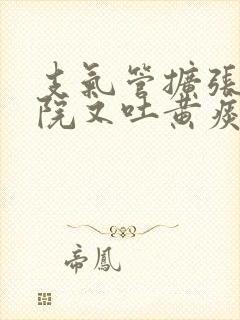 支氣管擴張
院又吐黃痰
帝鳳